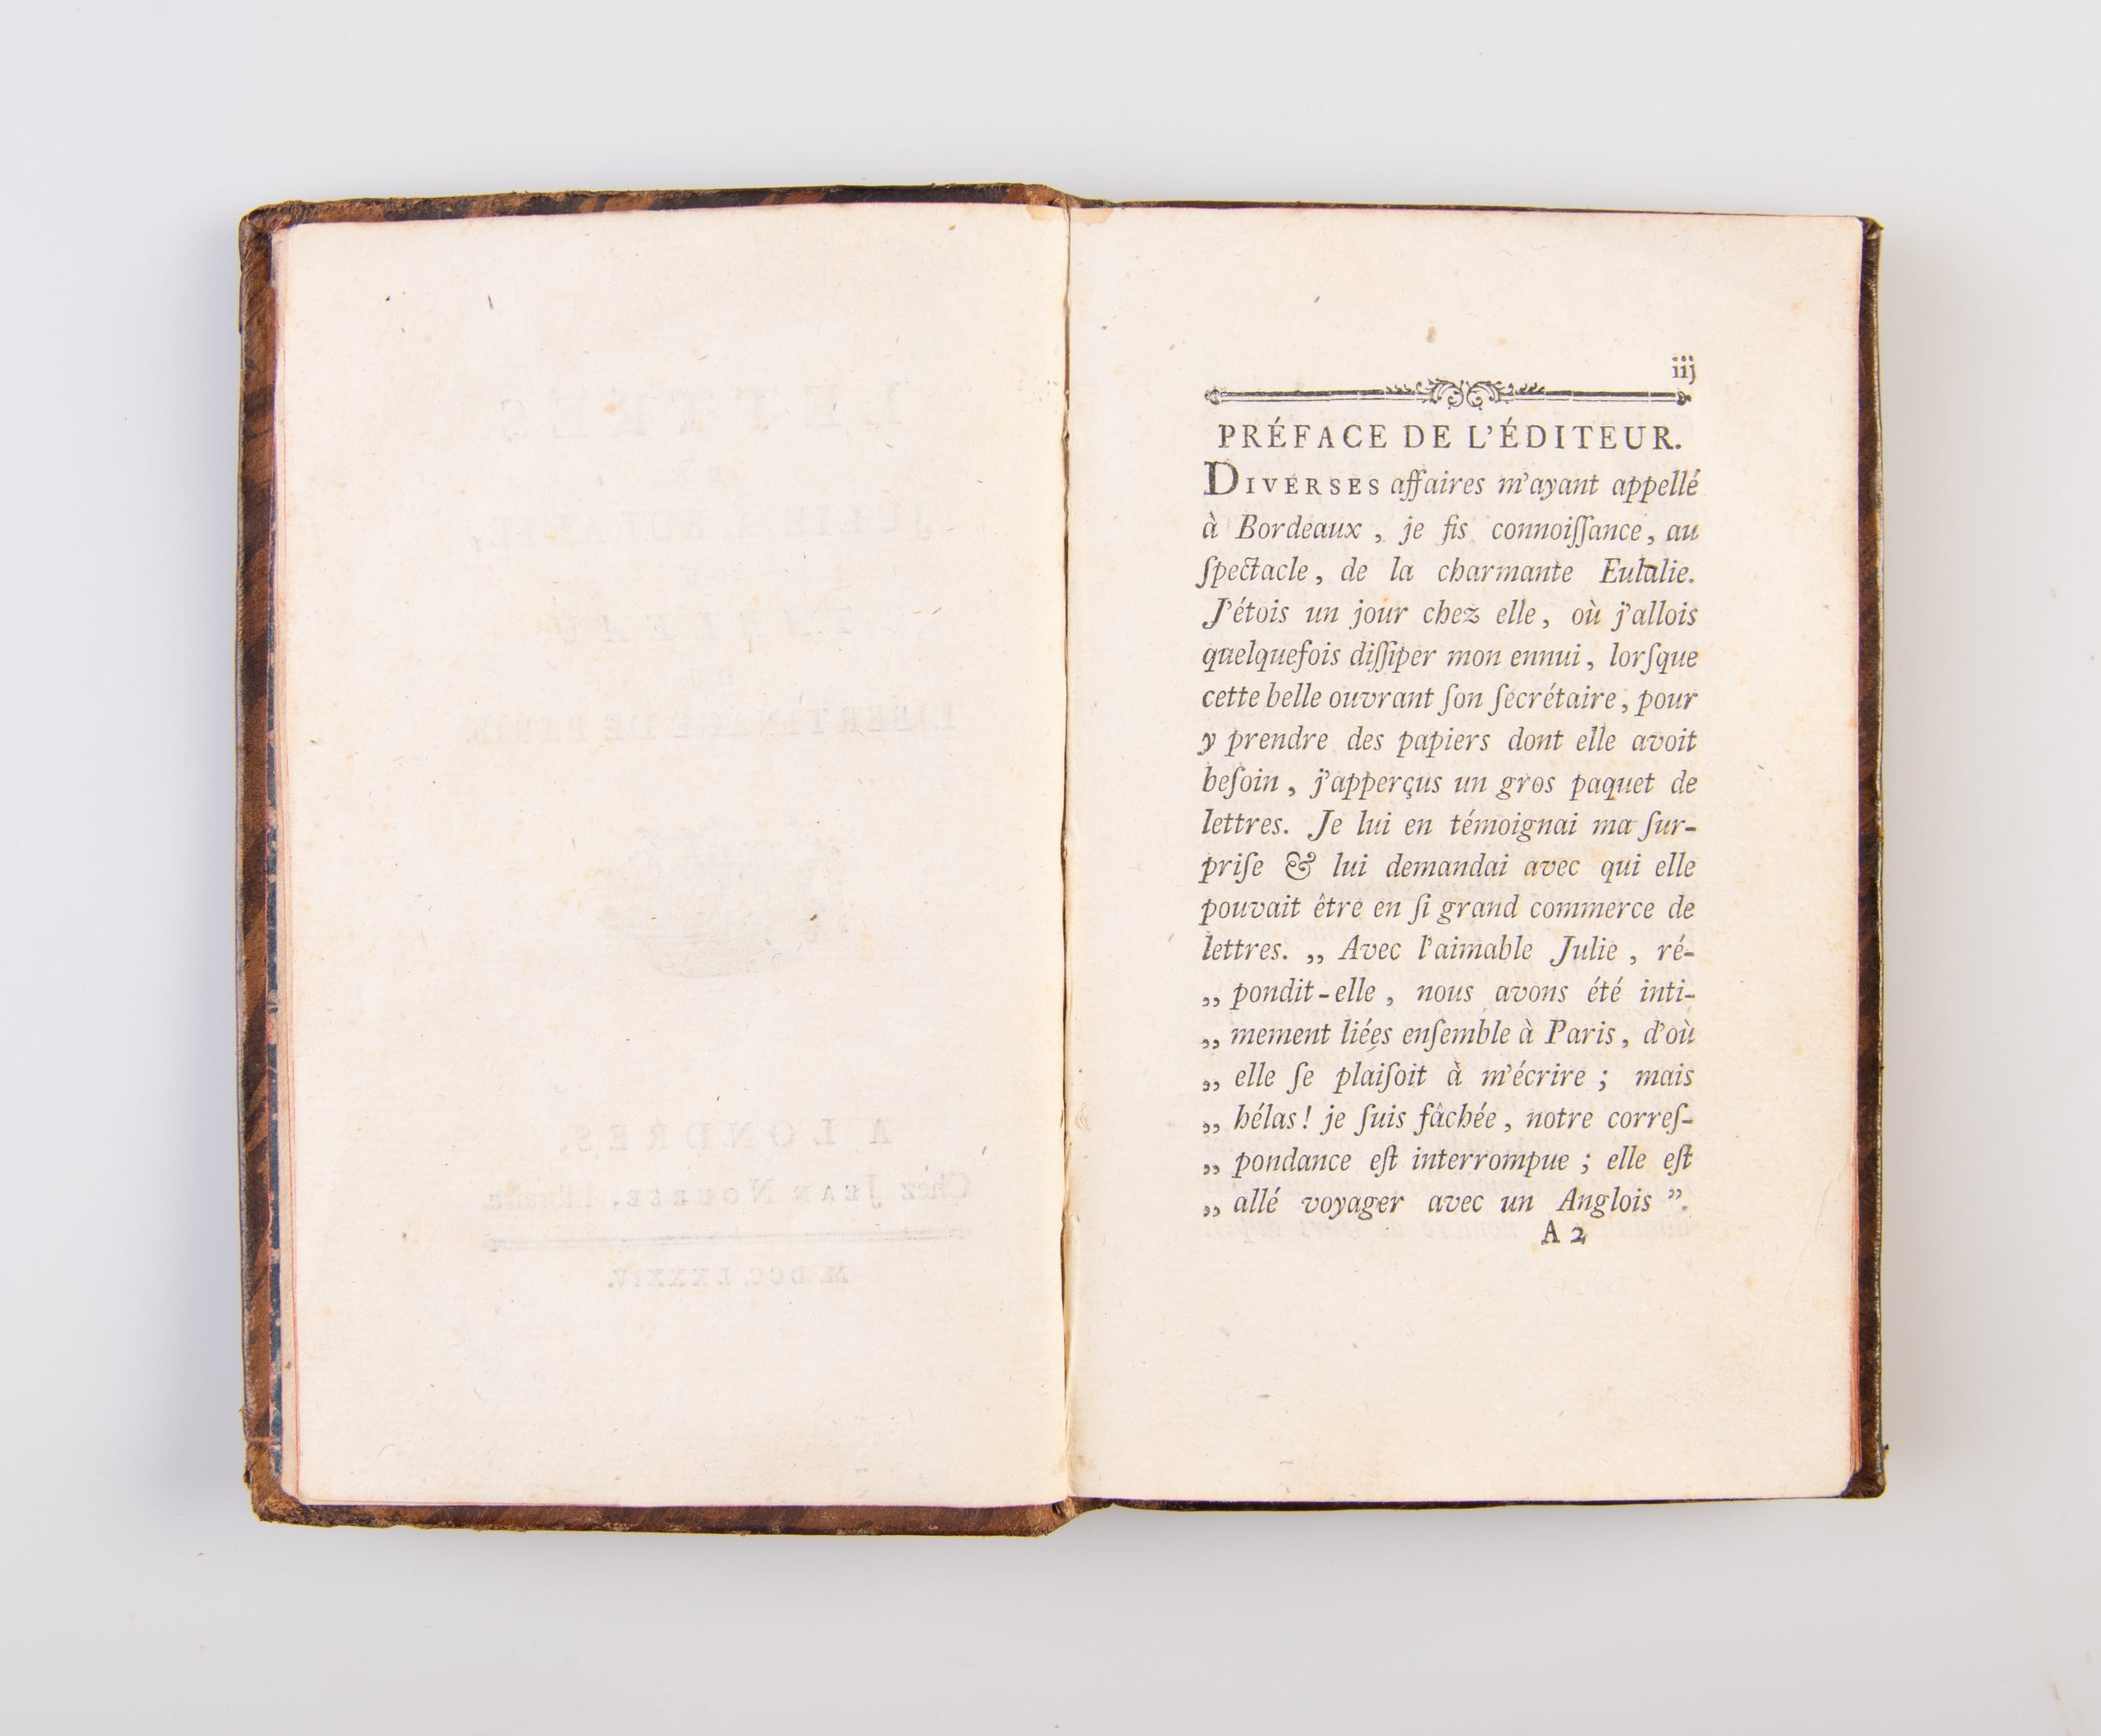 LETTRES
DE
JULIE
OU
TABLEAU
DU
LIBERTINAGE DE PARIS.
A LONDRES,
Chez JEAN NOURSE, Libraire.
M. DCC. LXXXIV.
iij
PRÉFACE DE L'ÉDITEUR.
DIVERSES affaires m'ayant appellé
à Bordeaux , je fis connoiſſance, au
ſpectacle, de la charmante Eulalie.
J'étois un jour chez elle, où j'allois
quelquefois diſſiper mon ennui, lorſque
cette belle ouvrant ſon ſecrétaire, pour
y prendre des papiers dont elle avoit
beſoin, j'apperçus un gros paquet de
lettres. Je lui en témoignai ma ſur-
priſe & lui demandai avec qui elle
pouvait être en ſi grand commerce de
lettres. „ Avec l'aimable Julie, ré-
„ pondit-elle, nous avons été inti-
„ mement liées enſemble à Paris, d'où
„ elle ſe plaiſoit à m'écrire ; mais
„ hélas! je ſuis fâchée, notre correſ-
„ pondance eſt interrompue ; elle eſt
„ allé voyager avec un Anglois ”.
A 2